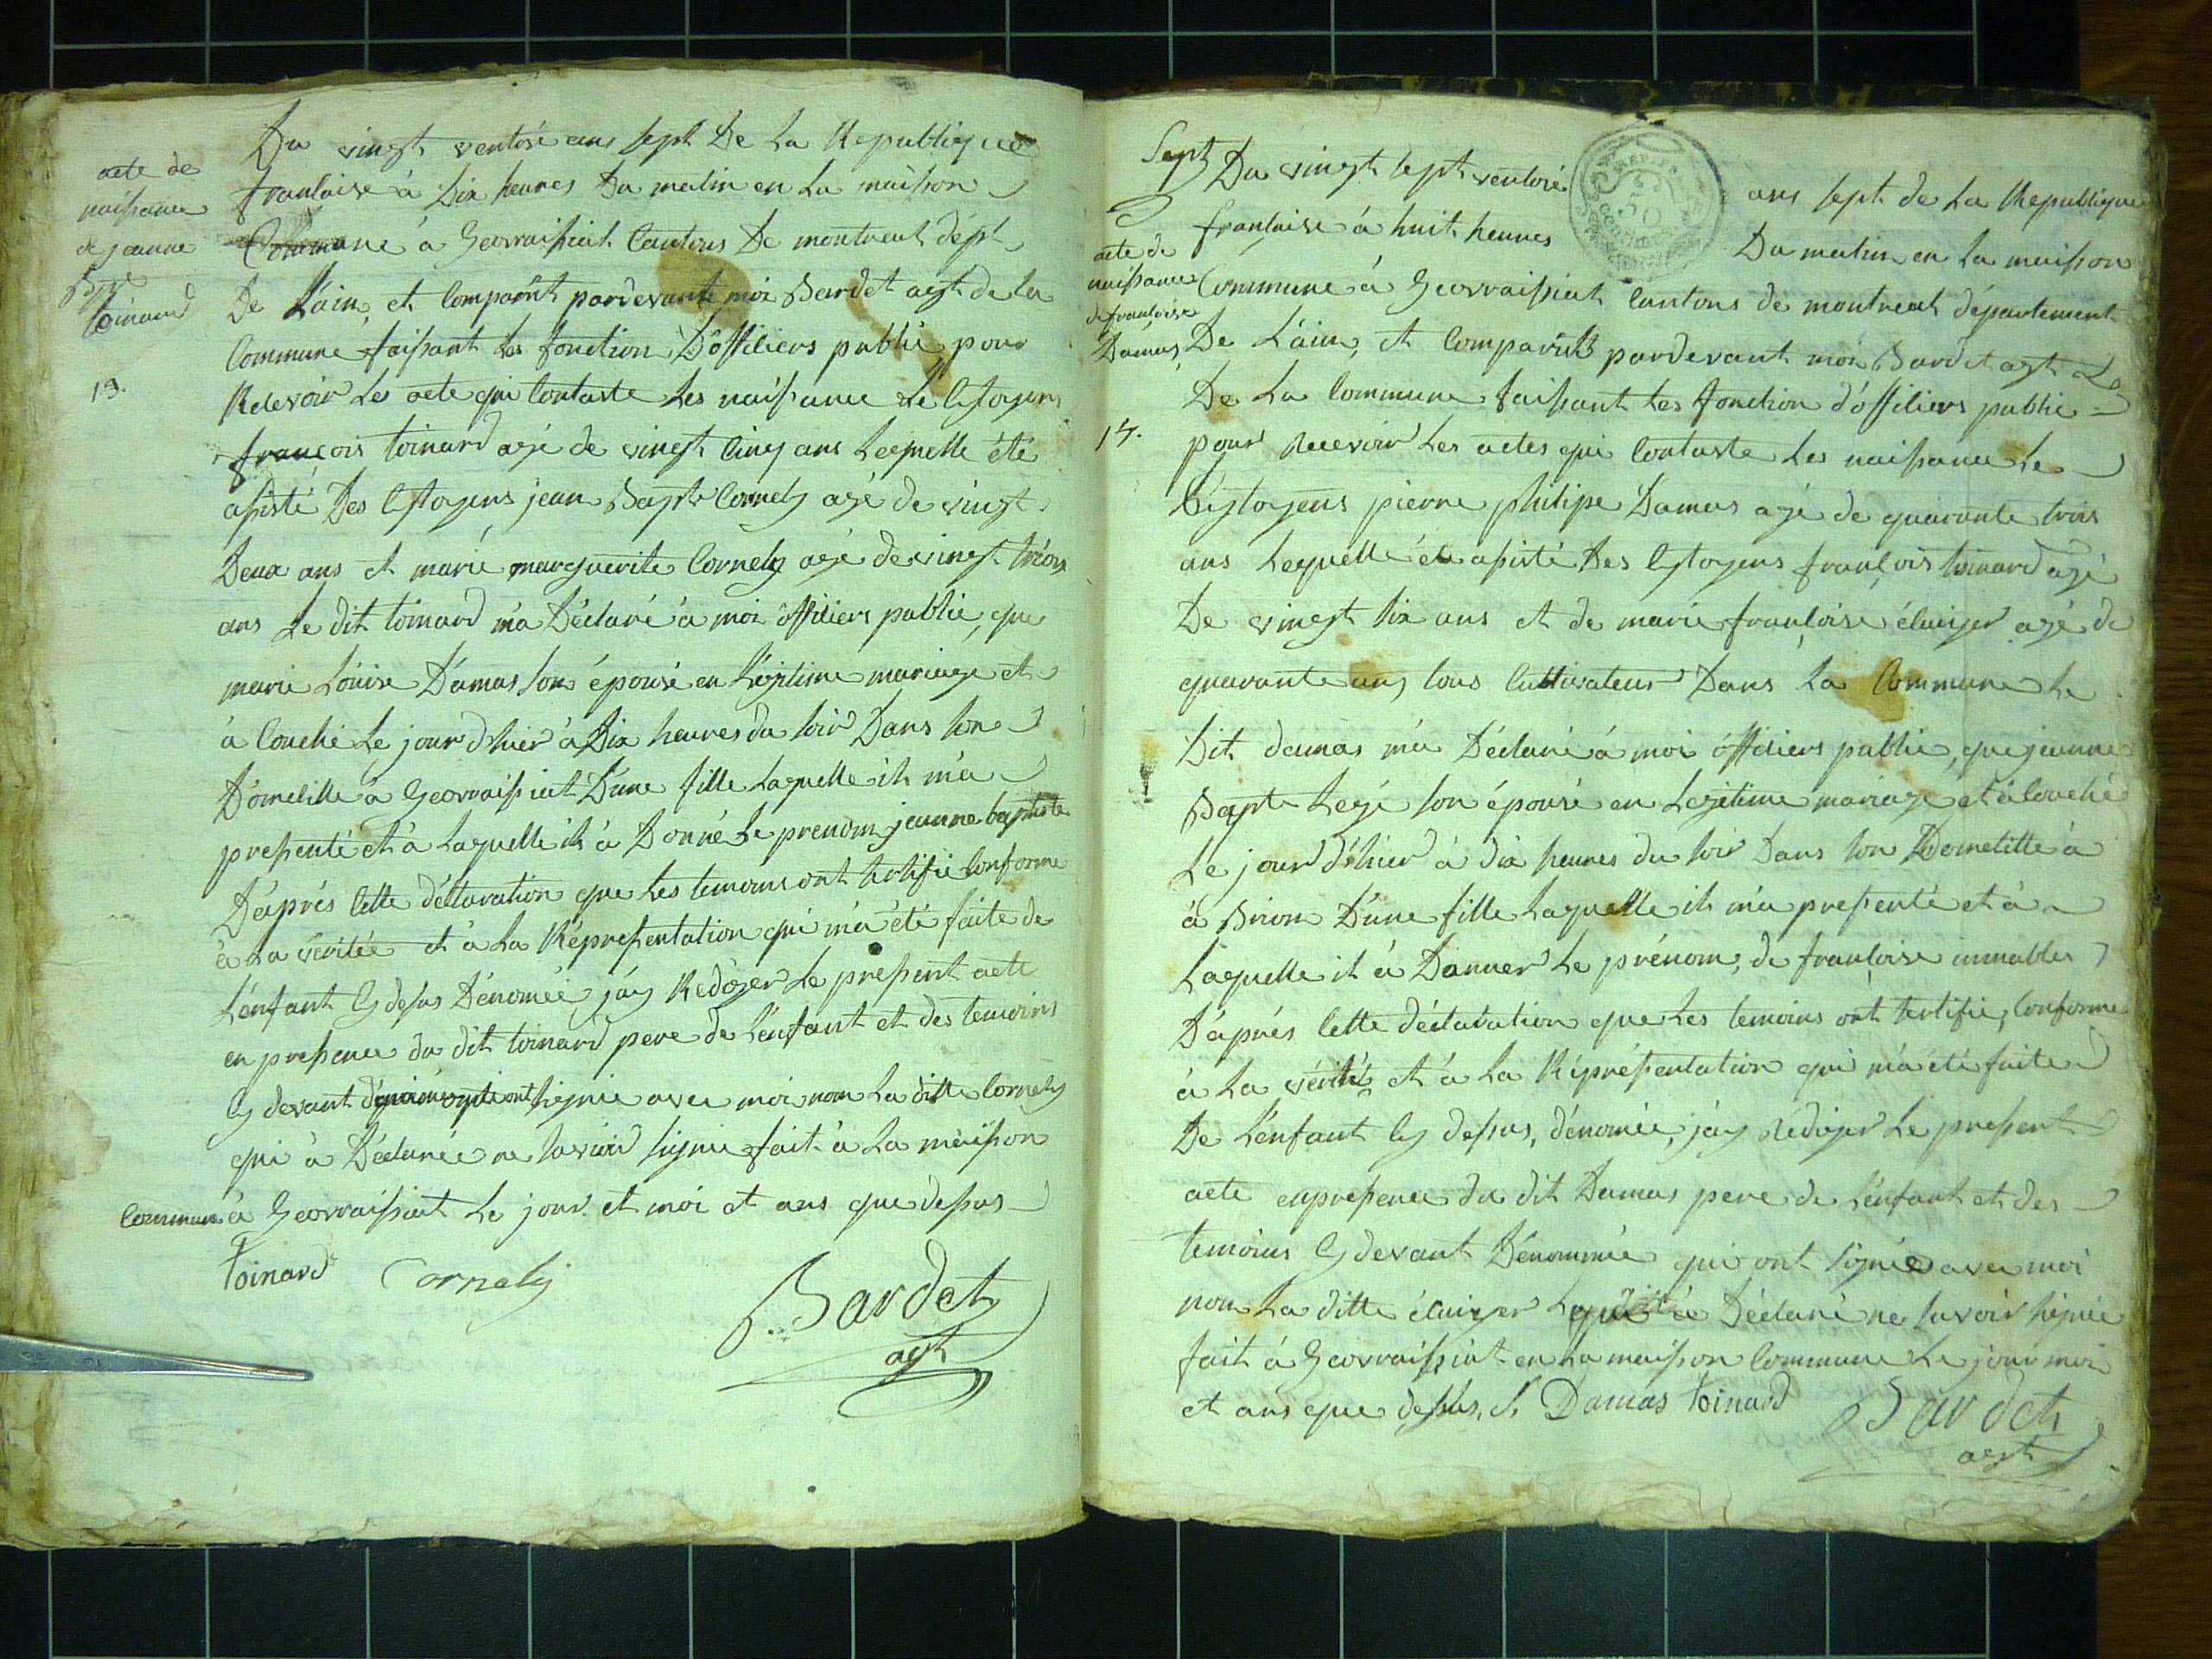 acte de
naissance
de jeanne
Bpte
toinard
19.
Du vingt ventose ans sept De La Republique
francaise à Dix heures Du matin en La maison
Commune à Geovraissiat Cantons De montreal dépt
De L'ain, et Comparût pardevant moi Bardet agt de la
Commune faissant Les fonction D'officiers public, pour
Recevoir Les acte qui Contaste Les naissance Le Citoyens
françois toinard agé de vingt Cinq ans Lequelle été
assisté Des Citoyens jean Bapte Cornely agé de vingt
Deux ans et marie marguerite Cornely agé de vingt trois
ans Le dit toinard m'a Déclaré à moi officiers public, que
marie Louise Damas son épouse en Légitime mariage et
à Couché Le jour d'hier à Dix heures du soir Dans son
Domcille à Geovraissiat D'une fille Laquelle il m'a
pressenté et à Laquelle il à Donné Le prenom jeanne baptiste
D'après Cette déclaration que Les temoins ont Certifie Conforme
à La véritée et à La Répressentation qui m'a été faite de
L'enfant Cy dessus Dénomée j'ay Rédiger Le pressent acte
en pressence du dit toinard pere de L'enfant et des temoins
Cy devant qui ont signie avec moi non La ditte Cornely
qui à Déclarée ne savoir signie fait à La maisson
Commune à Geovraissiat Le jour et moi et ans que dessus
toinard Cornely
Bardet
agt
Sept
acte de
naissance
de francoise
Damas
14.
Du vingt sept ventose ans sept de La Republique
françaisse à huit heures Du matin en La maisson
Commune à Geovraissiat Cantons de montreal département
De L'ain, et Comparût pardevant moi Bardet agt
De La Commune faissant Les fonction d'officiers public
pour Recevoir Les actes qui Contaste Les naissance Le
Citoyens pierre philipe Damas agé de quarante trois
ans Lequelle été assisté Des Citoyens françois toinard agé
De vingt six ans et de marie francoise agé de
quarante ans tous Cultivateur Dans La Commune Le
Dit damas m'a Déclaré à moi officiers public, que jeanne
Bapte Legé son épouse en Legitime mariage et à Couché
Le jour d'hier à dix heures du soir Dans son Domcille à
à Brion D'une fille Laquelle il m'a pressenté et à
Laquelle il à Donner Le prénom, de francoise
D'après Cette déclaration que Les temoins ont Certifie, Conforme
à La vérité et à La Répréssentation qui m'a été faite
De L'enfant Cy dessus, dénomée, j'ay Rédiger Le pressent
acte en pressence du dit Damas pere de L'enfant et des
temoins Cy devant Dénommée qui ont signée avec moi
non La ditte Déclaré ne savoir signée
fait à Geovraissiat en La maisson Commune Le jour moi
et ans que dessus. Damas toinard Bardet
agt